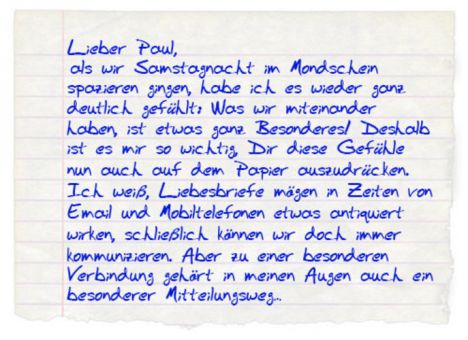 Lieber Paul,
als wir Samstagnacht im Mondschein
spazieren gingen, habe ich es wieder ganz
deutlich gefühlt: Was wir miteinander
haben, ist etwas ganz Besonderes! Deshalb
ist es mir so wichtig, Dir diese Gefühle
nun auch auf dem Papier auszudrücken.
Ich weiß, Liebesbriefe mögen in Zeiten von
Email und Mobiltelefonen etwas antiquiert
wirken, schließlich können wir doch immer
kommunizieren. Aber zu einer besonderen
Verbindung gehört in meinen Augen auch ein
besonderer Mitteilungsweg...